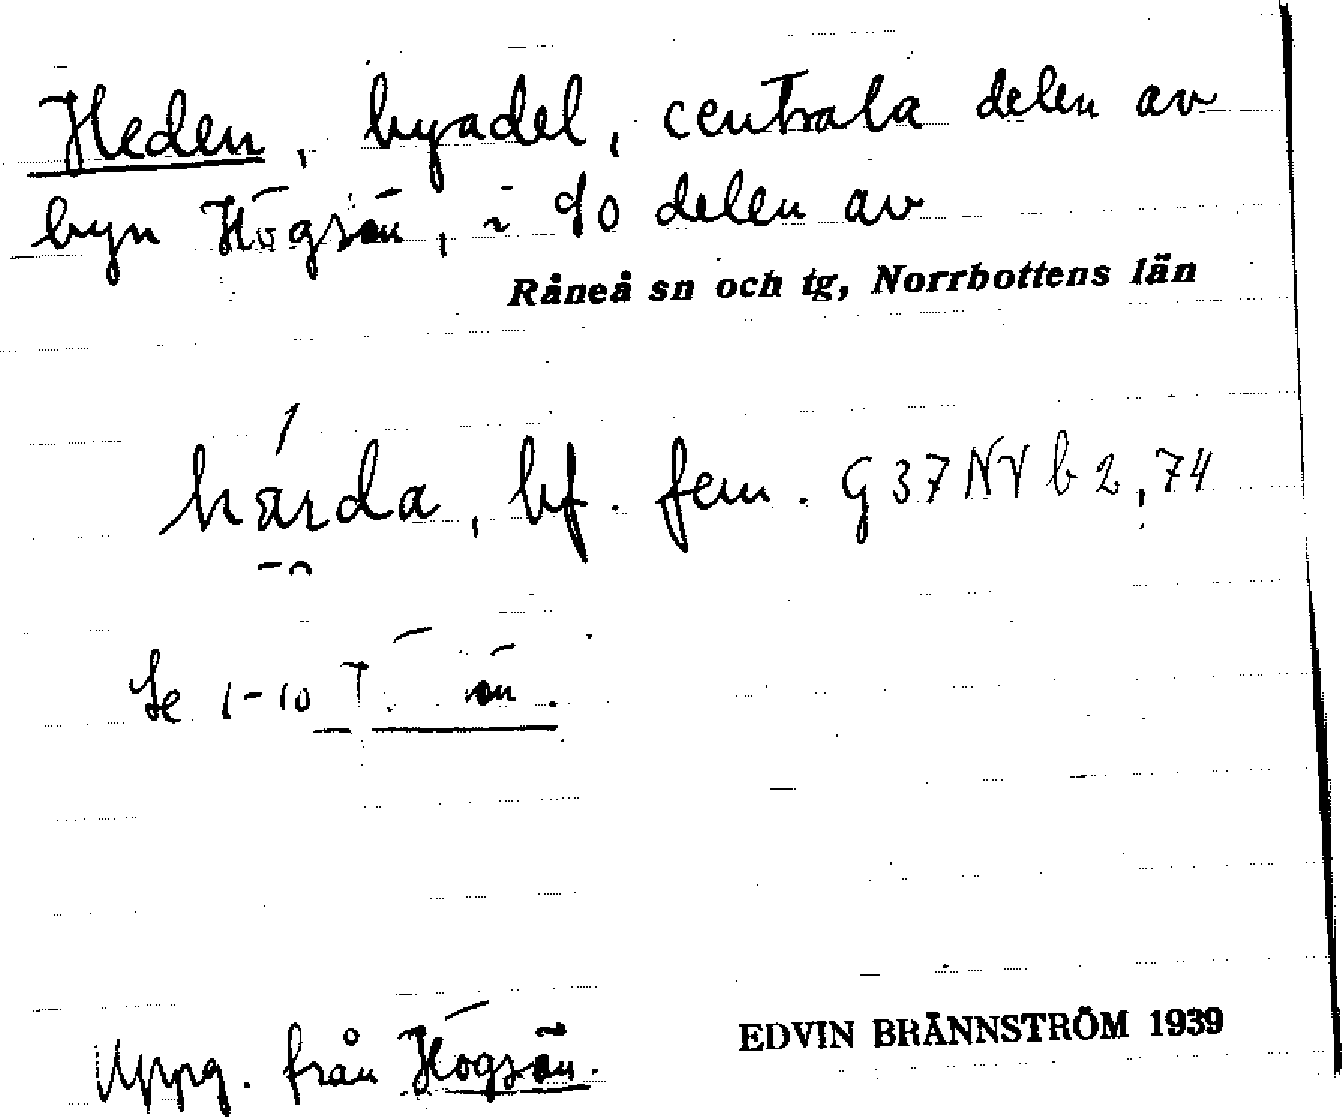 Heden, byadel, centrala delen av
byn Högsön, i SO delen av
Råneå sn och tg, Norrbottens län
härda, bf. fem. G37NVb2,74
Se 1-10
Uppg. från Högsön.
EDVIN BRÄNNSTRÖM 1939